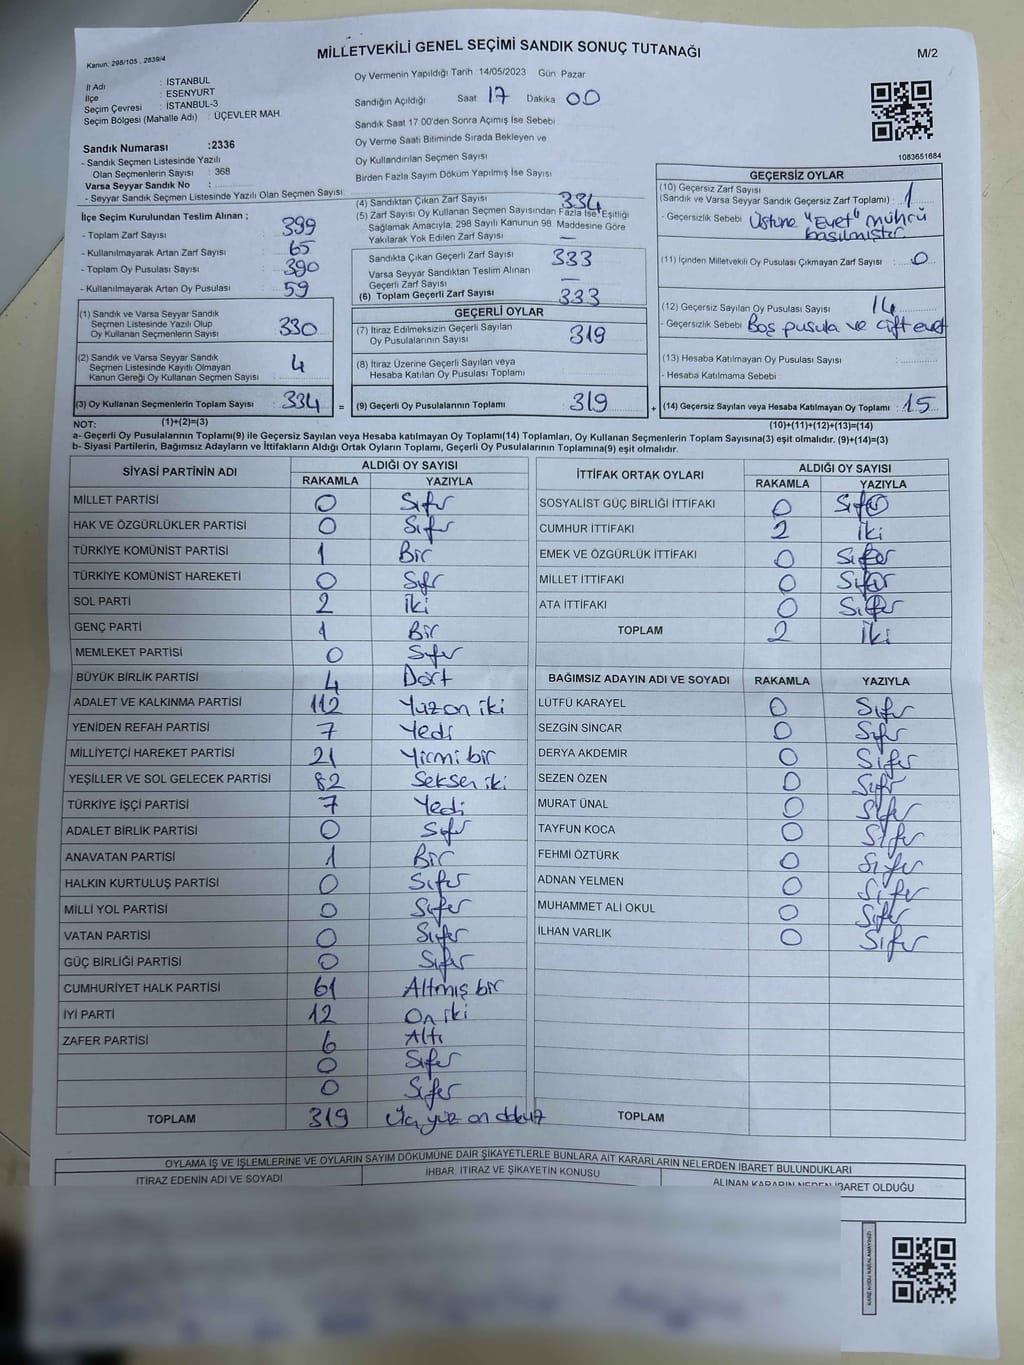 MİLLETVEKİLİ GENEL SEÇİMİ SANDIK SONUÇ TUTANAĞI
M/2
Kanun; 298/105 , 2839/4
İl Adı : İSTANBUL
İlçe : ESENYURT
Seçim Çevresi : İSTANBUL-3
Seçim Bölgesi (Mahalle Adı) : ÜÇEVLER MAH
Sandık Numarası :2336
- Sandık Seçmen Listesinde Yazılı
Olan Seçmenlerin Sayısı : 368
Varsa Seyyar Sandık No :
- Seyyar Sandık Seçmen Listesinde Yazılı Olan Seçmen Sayısı:
Oy Vermenin Yapıldığı Tarih 14/05/2023 Gün Pazar
Sandığın Açıldığı Saat 17 Dakika 00
Sandık Saat 17.00'den Sonra Açımış İse Sebebi
Oy Verme Saati Bitiminde Sırada Bekleyen ve
Oy Kullandırılan Seçmen Sayısı
Birden Fazla Sayım Döküm Yapılmış İse Sayısı
1083651684
İlçe Seçim Kurulundan Teslim Alınan ;
- Toplam Zarf Sayısı : 399
- Kullanılmayarak Artan Zarf Sayısı : 65
- Toplam Oy Pusulası Sayısı : 390
- Kullanılmayarak Artan Oy Pusulası : 59
(1) Sandık ve Varsa Seyyar Sandık
Seçmen Listesinde Yazılı Olup
Oy Kullanan Seçmenlerin Sayısı : 330
(2) Sandık ve Varsa Seyyar Sandık
Seçmen Listesinde Kayıtlı Olmayan
Kanun Gereği Oy Kullanan Seçmen Sayısı : 4
(3) Oy Kullanan Seçmenlerin Toplam Sayısı : 334 =
(4) Sandıktan Çıkan Zarf Sayısı 334
(5) Zarf Sayısı Oy Kullanan Seçmen Sayısından Fazla İse, Eşitliği
Sağlamak Amacıyla, 298 Sayılı Kanunun 98. Maddesine Göre
Yakılarak Yok Edilen Zarf Sayısı —
Sandıkta Çıkan Geçerli Zarf Sayısı 333
Varsa Seyyar Sandıktan Teslim Alınan
Geçerli Zarf Sayısı —
(6) Toplam Geçerli Zarf Sayısı 333
GEÇERLİ OYLAR
(7) İtiraz Edilmeksizin Geçerli Sayılan
Oy Pusulalarının Sayısı 319
(8) İtiraz Üzerine Geçerli Sayılan veya
Hesaba Katılan Oy Pusulası Toplamı
(9) Geçerli Oy Pusulalarının Toplamı 319 +
GEÇERSİZ OYLAR
(10) Geçersiz Zarf Sayısı
(Sandık ve Varsa Seyyar Sandık Geçersiz Zarf Toplamı) : 1
- Geçersizlik Sebebi Üstüne "Evet" mührü
basılmıştır
(11) İçinden Milletvekili Oy Pusulası Çıkmayan Zarf Sayısı : 0
(12) Geçersiz Sayılan Oy Pusulası Sayısı 14
- Geçersizlik Sebebi Boş pusula ve çift evet
(13) Hesaba Katılmayan Oy Pusulası Sayısı
- Hesaba Katılmama Sebebi
(14) Geçersiz Sayılan veya Hesaba Katılmayan Oy Toplamı : 15
NOT: (1)+(2)=(3) (10)+(11)+(12)+(13)=(14)
a- Geçerli Oy Pusulalarının Toplamı(9) ile Geçersiz Sayılan veya Hesaba katılmayan Oy Toplamı(14) Toplamları, Oy Kullanan Seçmenlerin Toplam Sayısına(3) eşit olmalıdır. (9)+(14)=(3)
b- Siyasi Partilerin, Bağımsız Adayların ve İttifakların Aldığı Ortak Oyların Toplamı, Geçerli Oy Pusulalarının Toplamına(9) eşit olmalıdır.
SİYASİ PARTİNİN ADI ALDIĞI OY SAYISI
RAKAMLA YAZIYLA
MİLLET PARTİSİ 0 Sıfır
HAK VE ÖZGÜRLÜKLER PARTİSİ 0 Sıfır
TÜRKİYE KOMÜNİST PARTİSİ 1 Bir
TÜRKİYE KOMÜNİST HAREKETİ 0 Sıfır
SOL PARTİ 2 İki
GENÇ PARTİ 1 Bir
MEMLEKET PARTİSİ 0 Sıfır
BÜYÜK BİRLİK PARTİSİ 4 Dört
ADALET VE KALKINMA PARTİSİ 112 Yüz on iki
YENİDEN REFAH PARTİSİ 7 Yedi
MİLLİYETÇİ HAREKET PARTİSİ 21 Yirmi bir
YEŞİLLER VE SOL GELECEK PARTİSİ 82 Seksen iki
TÜRKİYE İŞÇİ PARTİSİ 7 Yedi
ADALET BİRLİK PARTİSİ 0 Sıfır
ANAVATAN PARTİSİ 1 Bir
HALKIN KURTULUŞ PARTİSİ 0 Sıfır
MİLLİ YOL PARTİSİ 0 Sıfır
VATAN PARTİSİ 0 Sıfır
GÜÇ BİRLİĞİ PARTİSİ 0 Sıfır
CUMHURİYET HALK PARTİSİ 61 Altmış bir
İYİ PARTİ 12 On iki
ZAFER PARTİSİ 6 Altı
0 Sıfır
0 Sıfır
TOPLAM 319 Üç yüz on dokuz
İTTİFAK ORTAK OYLARI ALDIĞI OY SAYISI
RAKAMLA YAZIYLA
SOSYALİST GÜÇ BİRLİĞİ İTTİFAKI 0 Sıfır
CUMHUR İTTİFAKI 2 İki
EMEK VE ÖZGÜRLÜK İTTİFAKI 0 Sıfır
MİLLET İTTİFAKI 0 Sıfır
ATA İTTİFAKI 0 Sıfır
TOPLAM 2 İki
BAĞIMSIZ ADAYIN ADI VE SOYADI RAKAMLA YAZIYLA
LÜTFÜ KARAYEL 0 Sıfır
SEZGİN SİNCAR 0 Sıfır
DERYA AKDEMİR 0 Sıfır
SEZEN ÖZEN 0 Sıfır
MURAT ÜNAL 0 Sıfır
TAYFUN KOCA 0 Sıfır
FEHMİ ÖZTÜRK 0 Sıfır
ADNAN YELMEN 0 Sıfır
MUHAMMET ALİ OKUL 0 Sıfır
İLHAN VARLIK 0 Sıfır
TOPLAM
OYLAMA İŞ VE İŞLEMLERİNE VE OYLARIN SAYIM DÖKÜMÜNE DAİR ŞİKAYETLERLE BUNLARA AİT KARARLARIN NELERDEN İBARET BULUNDUKLARI
İTİRAZ EDENİN ADI VE SOYADI İHBAR, İTİRAZ VE ŞİKAYETİN KONUSU ALINAN KARARIN NEDEN İBARET OLDUĞU
KARE KODU KARALAMAYINIZ!